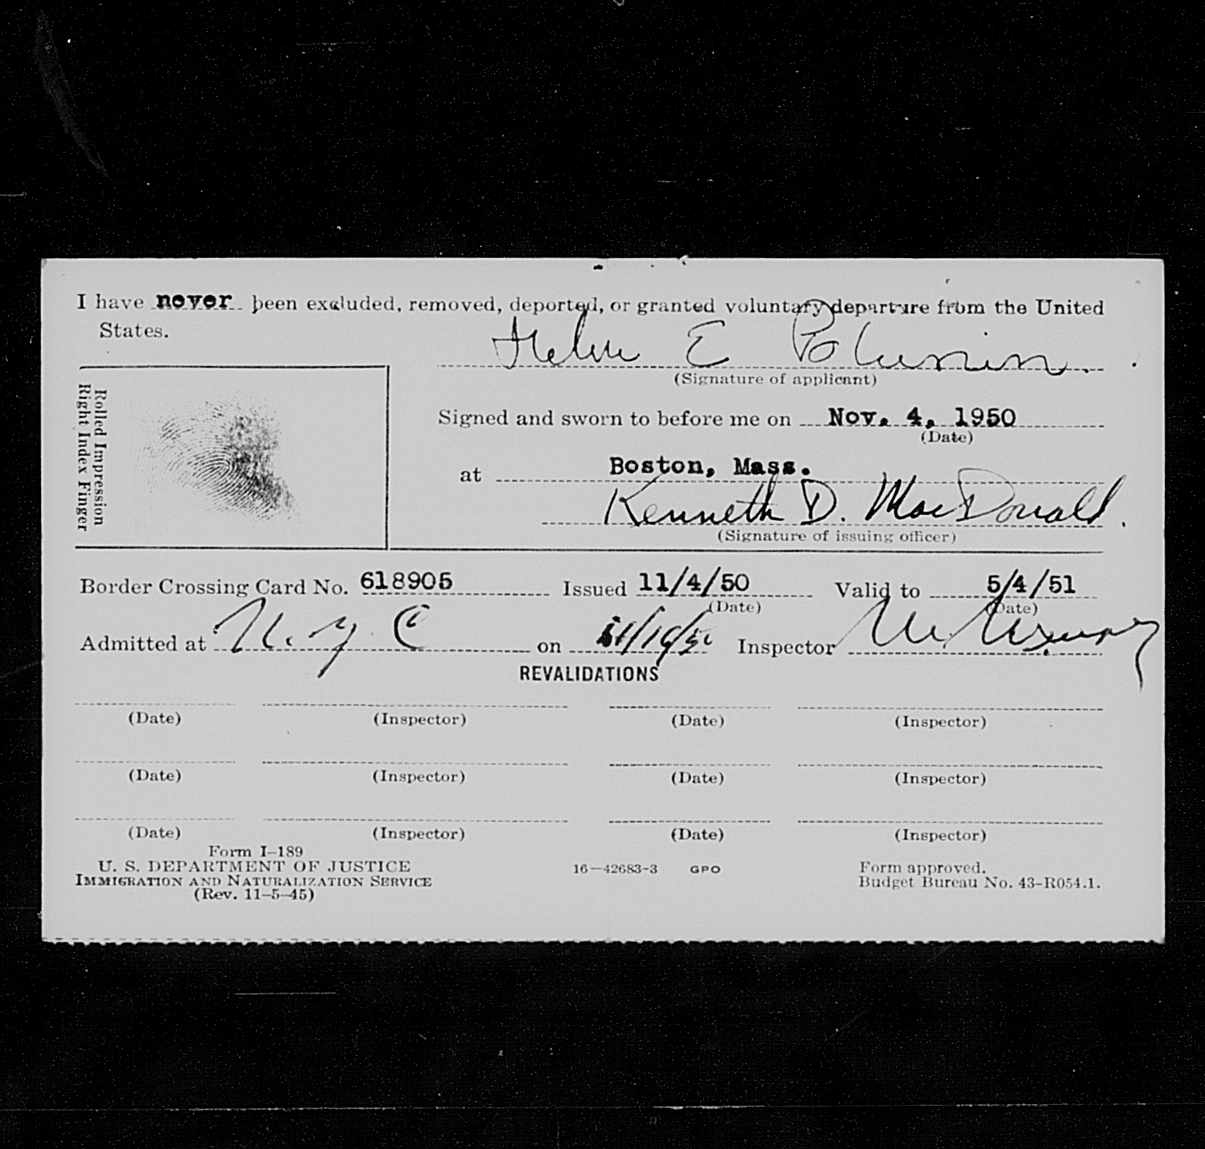 I have never been excluded, removed, deported, or granted voluntary departure from the United
States.
Helen E
(Signature of applicant)
Rolled Impression
Right Index Finger
Signed and sworn to before me on Nov. 4, 1950
(Date)
at Boston, Mass.
Kenneth D. MacDonald.
(Signature of issuing officer)
Border Crossing Card No. 618905 Issued 11/4/50 Valid to 5/4/51
(Date) (Date)
Admitted at N. Y C on Inspector
REVALIDATIONS
(Date) (Inspector) (Date) (Inspector)
(Date) (Inspector) (Date) (Inspector)
(Date) (Inspector) (Date) (Inspector)
Form I-189
U. S. DEPARTMENT OF JUSTICE 16—42683-3 GPO Form approved.
IMMIGRATION AND NATURALIZATION SERVICE Budget Bureau No. 43-R054.1.
(Rev. 11-5-45)